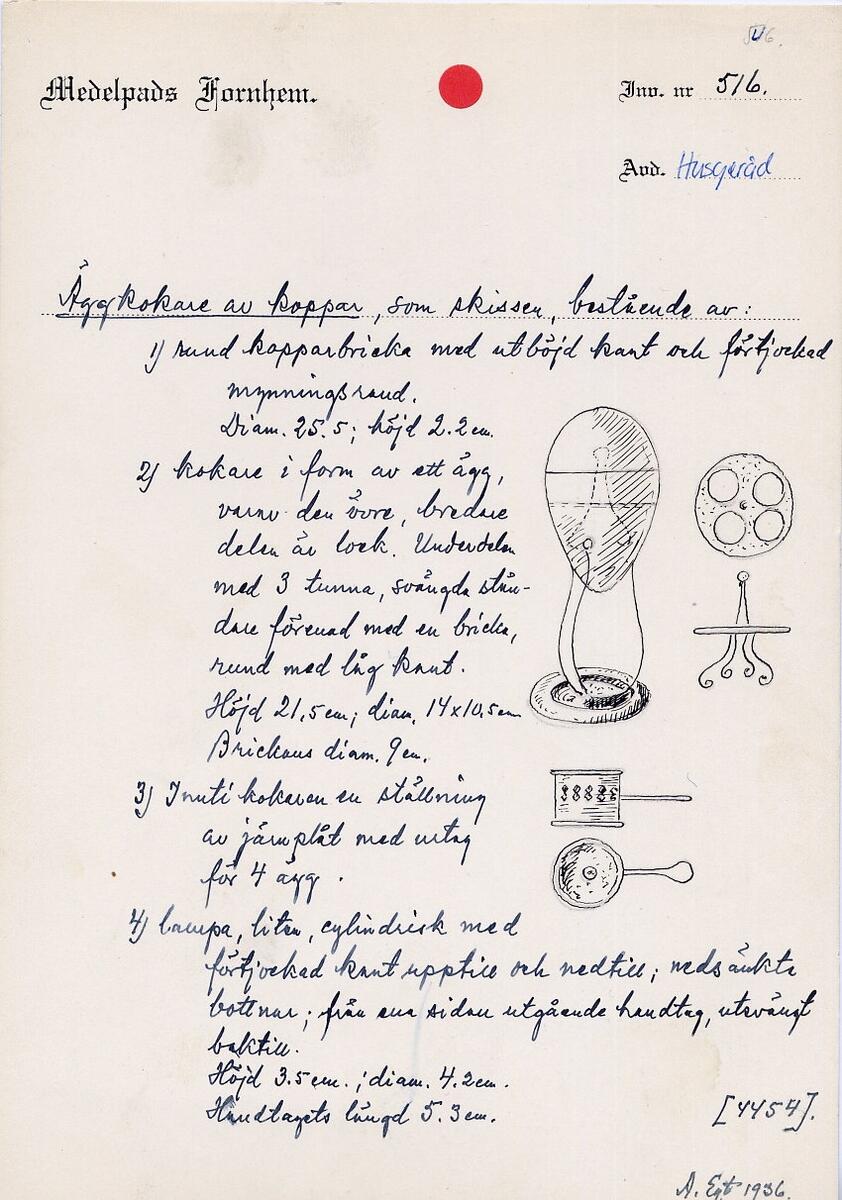 516.
Medelpads Fornhem.
Inv. nr 516.
Avd. Husgeråd
Äggkokare av koppar, som skissen, bestående av:
1) rund kopparbricka med utböjd kant och förtjockad
mynningsrand.
Diam. 25.5; höjd 2.2 cm.
2) kokare i form av ett ägg,
varav den övre, bredare
delen är lock. Underdelen
med 3 tunna, svängda stän-
dare förenad med en bricka,
rund med låg kant.
Höjd 21,5 cm; diam. 14x10,5 cm
Brickans diam. 9 cm.
3) Inuti kokaren en ställning
av järnplåt med urtag
för 4 ägg.
4) lampa, liten, cylindrisk med
förtjockad kant upptill och nedtill; nedsänkta
bottnar; från ena sidan utgående handtag, utsvängt
baktill.
Höjd 3.5 cm.; diam. 4.2 cm.
Handtagets längd 5.3 cm.
[4454].
A. Egt 1936.